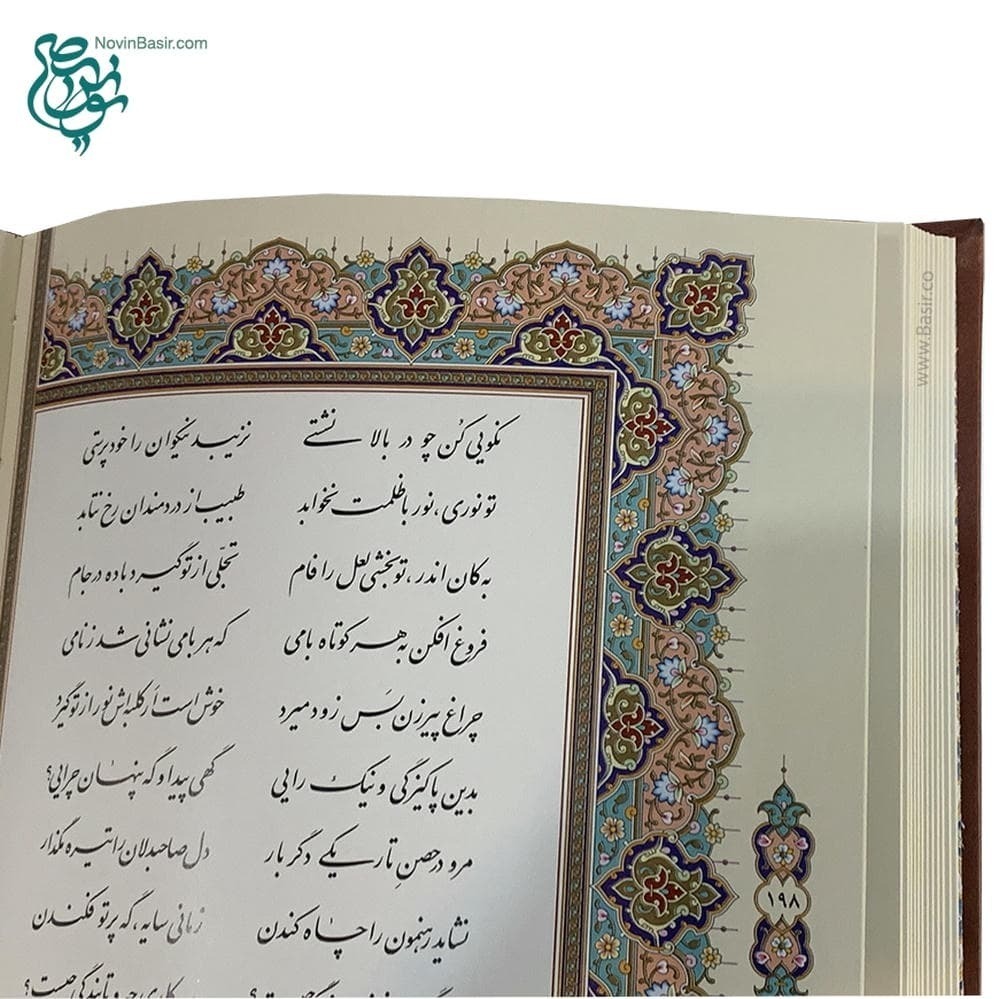 NovinBasir.com
www.Basir.co
نکویی کُن چو در بالا نشستی نزیبد نیکوان را خودپرستی
تو نوری، نور با ظلمت نخوابد طبیب از دردمندان رخ نتابد
به کان اندر، تو بخشی لعل را فام تجلّی از تو گیرد باده در جام
فروغ افکن به هر کوتاه بامی که هر بامی نشانی شد ز نامی
چراغ پیرزن بَس زود میرد خوش است اَر کلبه‌اش نور از تو گیرد
بدین پاکیزگی و نیک رایی گهی پیدا و گه پنهان چرایی؟
مرو در حصنِ تاریکی دگر بار دل صاحبدلان را تیره مگذار
نشاید رهنمون را چاه کندن زمانی سایه، گه پرتو فکندن
۱۹۸